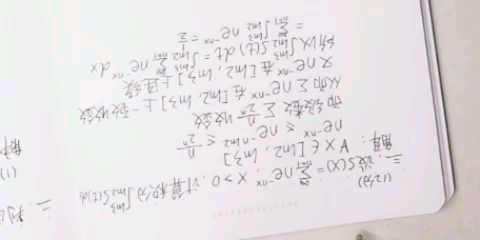 (12分)
三. 设S(x)=∑_{n=1}^{∞} ne^{-nx}, x>0, 计算积分 ∫_{ln2}^{ln3} S(t)dt
解: ∀x∈[ln2, ln3]
ne^{-nx} ≤ ne^{-n ln2} ≤ n/2^n
而级数∑ n/2^n 收敛
从而∑ne^{-nx} 在[ln2, ln3]上一致收敛
又 ne^{-nx} 在[ln2, ln3]上连续
所以∫_{ln2}^{ln3} S(t)dt = ∫_{ln2}^{ln3} ∑_{n=1}^{∞} ne^{-nx} dx
= ∑_{n=1}^{∞} ∫_{ln2}^{ln3} ne^{-nx} = 1/2
二.
(1)